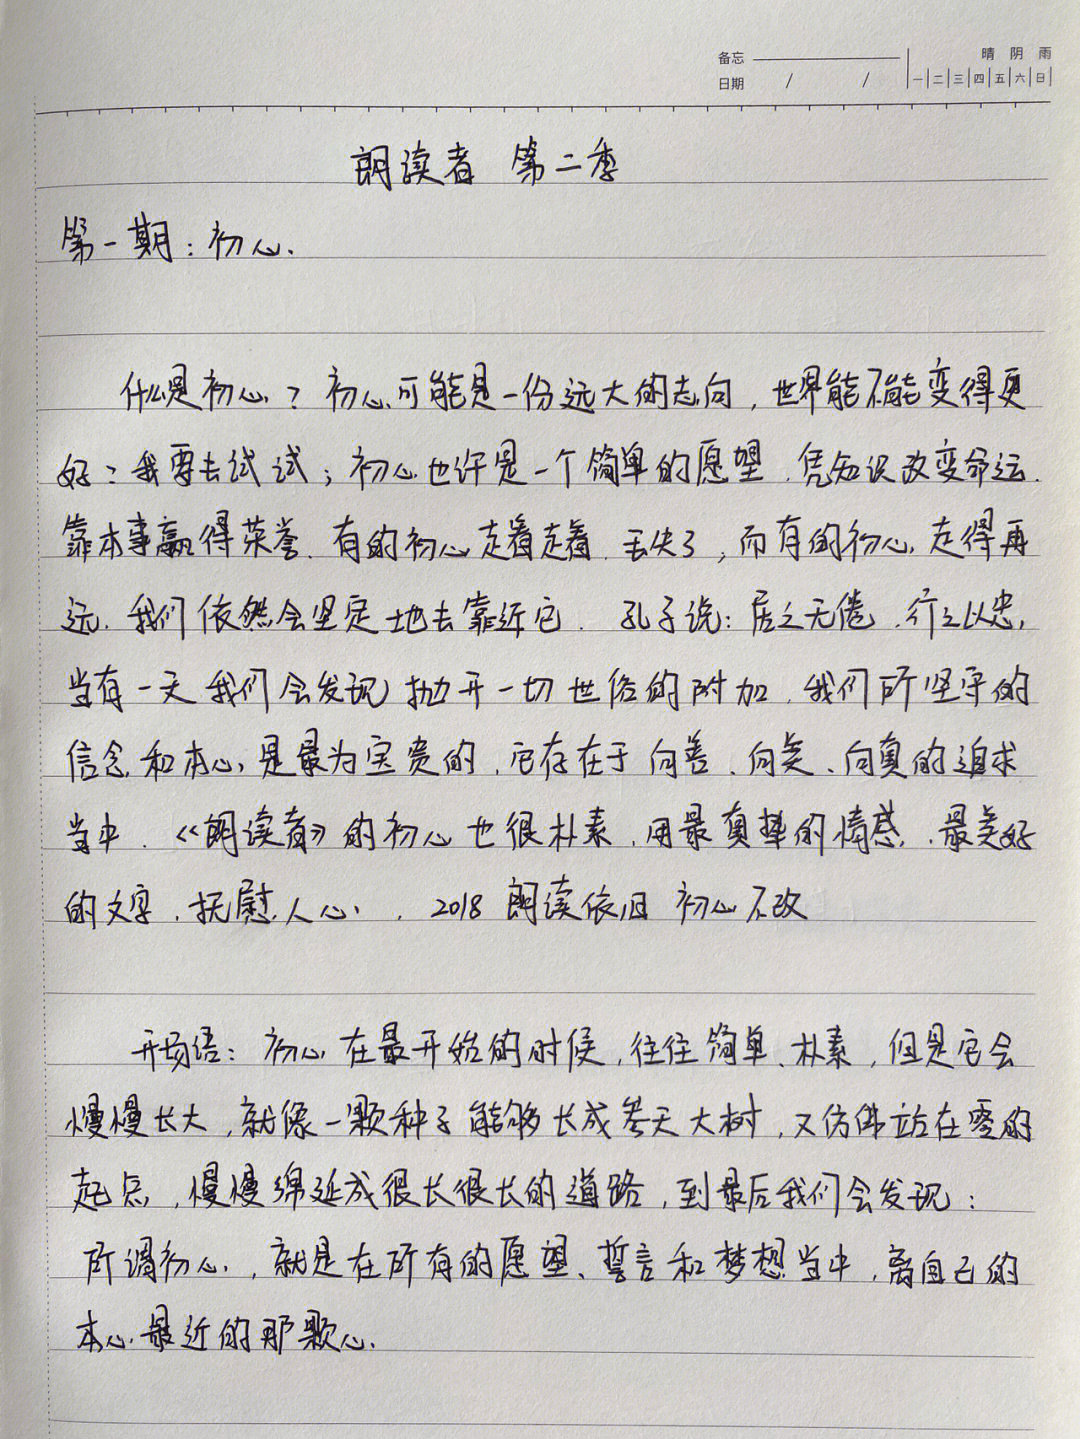 备忘 晴 阴 雨
日期 / / 一 二 三 四 五 六 日
朗读者 第二季
第一期：初心.
什么是初心？初心可能是一份远大的志向，世界能不能变得更
好？我要去试试；初心也许是一个简单的愿望，凭知识改变命运.
靠本事赢得荣誉.有的初心走着走着.丢失了，而有的初心，走得再
远.我们依然会坚定地去靠近它.孔子说：居之无倦.行之以忠，
当有一天我们会发现抛开一切世俗的附加.我们所坚守的
信念和本心，是最为宝贵的.它存在于向善、向美、向真的追求
当中.《朗读者》的初心也很朴素.用最真挚的情感，.最美好
的文字.抚慰人心，.2018 朗读依旧 初心不改
开场语：初心在最开始的时候，往往简单、朴素，但是它会
慢慢长大，就像一颗种子能够长成参天大树，又仿佛站在零的
起点，慢慢绵延成很长很长的道路，到最后我们会发现：
所谓初心，，就是在所有的愿望、誓言和梦想当中，离自己的
本心最近的那颗心.